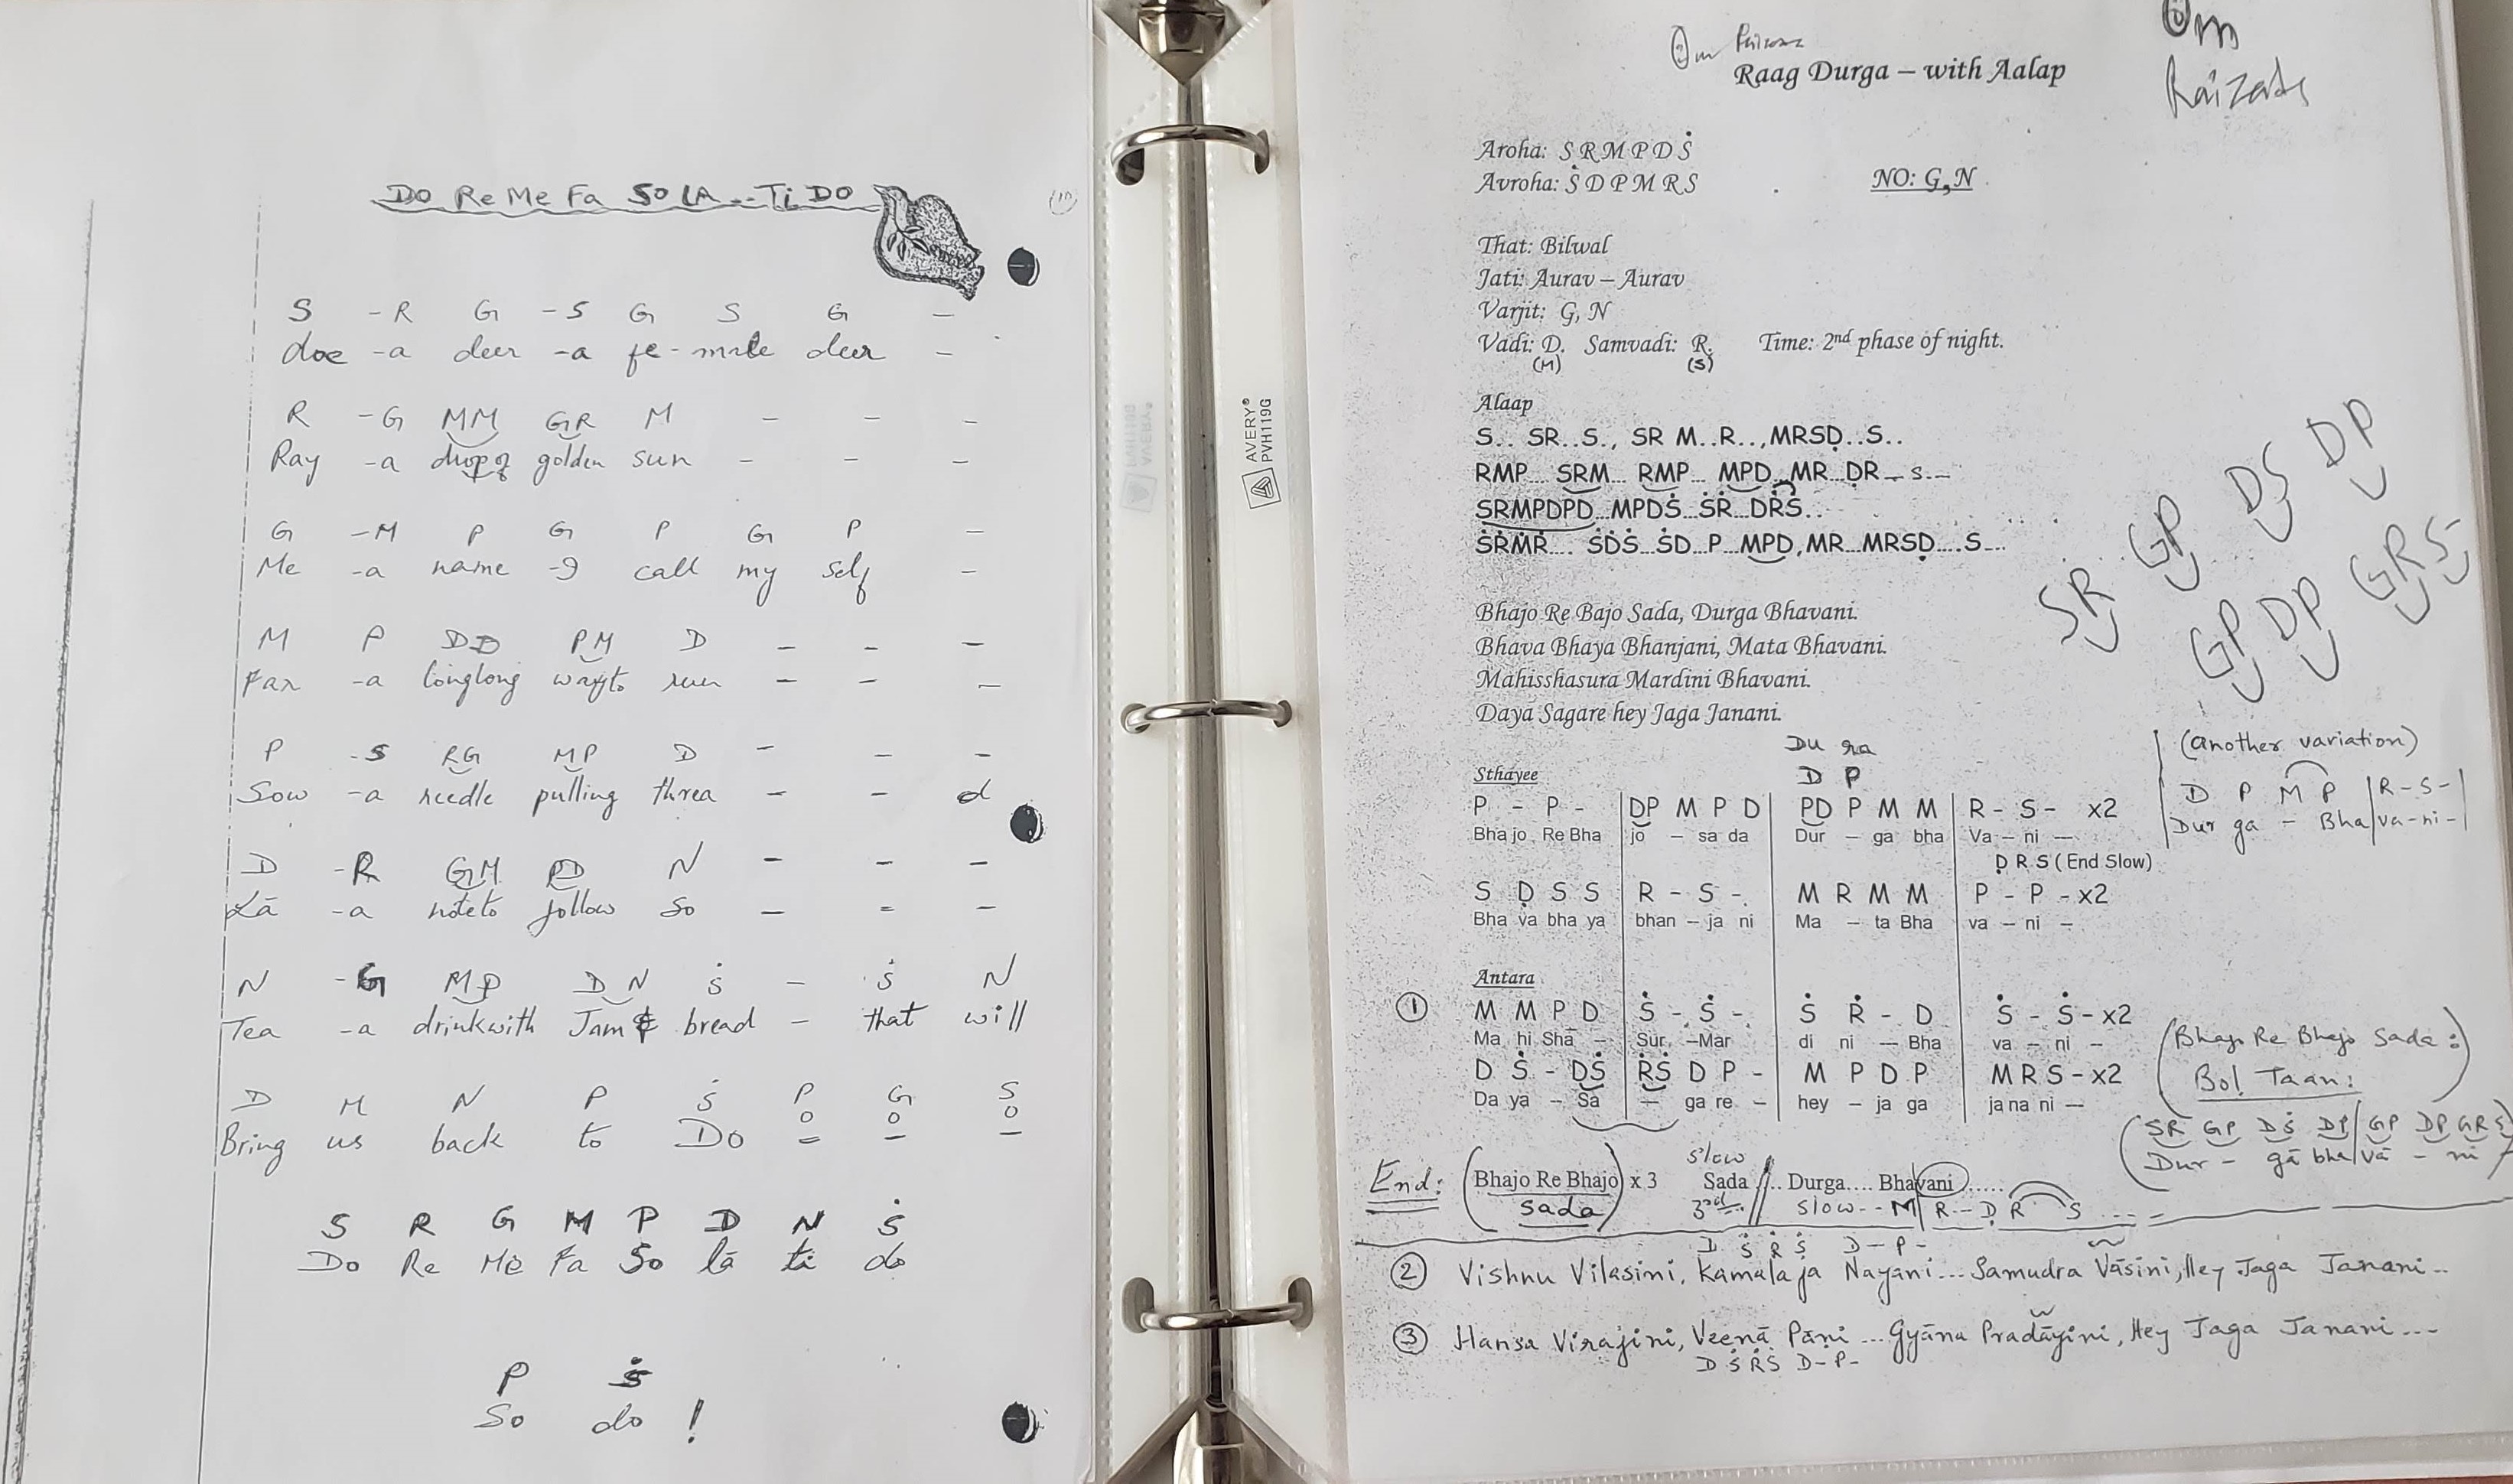 DO Re Me Fa SO LA -- Ti DO
S - R G - S G S G -
doe - a deer - a fe - male deer -
R - G MM GR M - - -
Ray - a drop of golden sun - - -
G - M P G P G P -
Me - a name - I call my self -
M P DD PM D - - -
Far - a longlong wayto run - - -
P - S RG MP D - - -
Sow - a needle pulling threa - - d
D - R GM PD N - - -
Lā - a note to follow so - = -
N - G MP D N Ṡ - Ṡ N
Tea - a drinkwith Jam & bread - that will
D M N P Ṡ P G S
o o o
Bring us back to Do = - -
S R G M P D N Ṡ
Do Re Me Fa So lā ti do
P Ṡ
So do !
AVERY®
PVH119G
Om
Raizada
Om
Raag Durga – with Aalap
Aroha: S R M P D Ṡ
Avroha: Ṡ D P M R S NO: G,N
That: Bilwal
Jati: Aurav – Aurav
Varjit: G, N
Vadi: D. Samvadi: R. Time: 2nd phase of night.
(M) (S)
Alaap
S.. SR..S., SR M..R..,MRSḌ..S..
RMP... SRM... RMP... MPD...MR...ḌR – S.—
SRMPDPD...MPDṠ...ṠṘ...DṘṠ..
ṠṘṀṘ.... ṠDṠ...ṠD...P...MPD, MR...MRSḌ....S...
SR GP DS DP
GP DP GRS-
Bhajo Re Bajo Sada, Durga Bhavani.
Bhava Bhaya Bhanjani, Mata Bhavani.
Mahisshasura Mardini Bhavani.
Daya Sagare hey Jaga Janani.
Du ra
D P
Sthayee
P - P - | DP M P D | PD P M M | R - S - x2
Bha jo Re Bha jo – sa da Dur – ga bha Va – ni —
D̩ R S ( End Slow)
(another variation)
D P M P | R - S - |
Dur ga - Bha | va - ni - |
S Ḍ S S | R - S - | M R M M | P - P - x2
Bha va bha ya bhan – ja ni Ma – ta Bha va – ni –
Antara
① M M P D | Ṡ - Ṡ - | Ṡ Ṙ - D | Ṡ - Ṡ - x2
Ma hi Sha – Sur –Mar di ni — Bha va – ni –
D Ṡ - DṠ | ṘṠ D P - | M P D P | M R S - x2
Da ya – Sa — ga re – hey – ja ga ja na ni —
(Bhajo Re Bhajo Sada :)
Bol Taan:
(SR GP DṠ DP | GP DP GR S
Dur - gā bha | vā - ni
End: (Bhajo Re Bhajo) x 3 Sada //... Durga.... Bhavani ......
slow
sada 3rd slow - - M | R - - Ḍ R S ---
D Ṡ Ṙ Ṡ D - P -
② Vishnu Vilasini, Kamalaja Nayani... Samudra Vāsini, Hey Jaga Janani..
③ Hansa Virajini, Veenā Pāni ... Gyāna Pradāyini, Hey Jaga Janani ---
D Ṡ Ṙ Ṡ D - P -